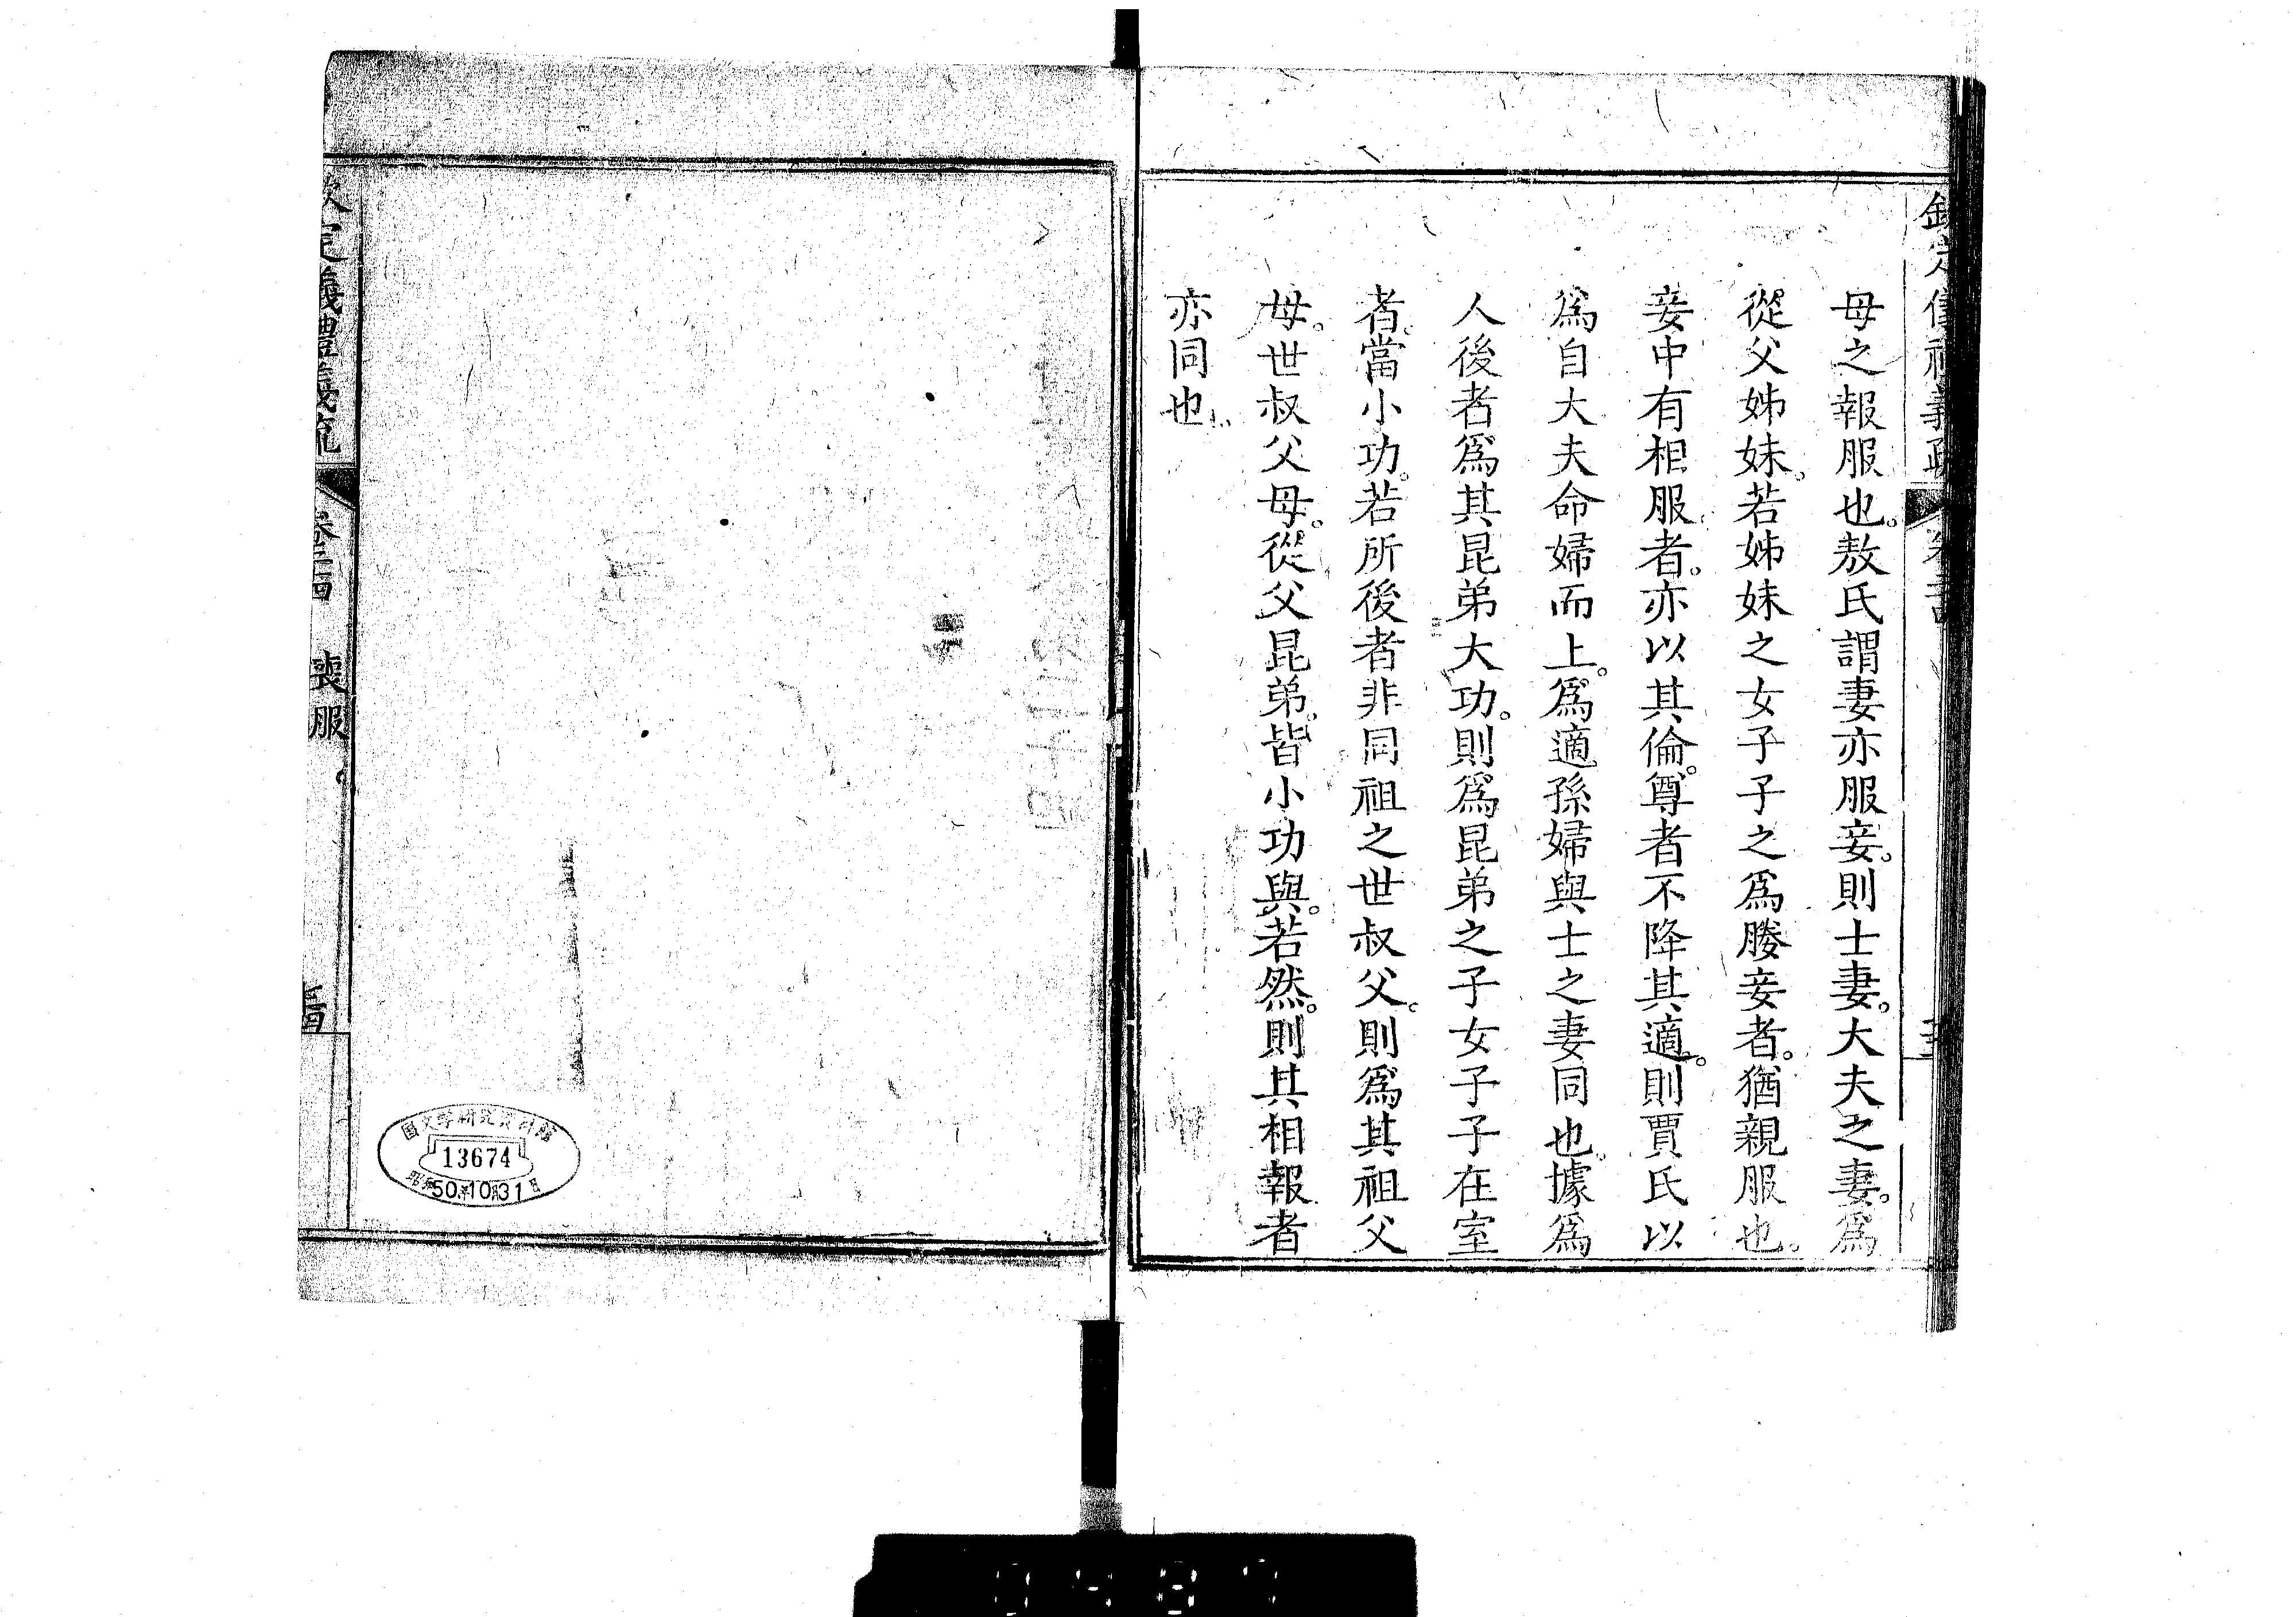 母之報服也。敖氏謂妻亦服妾。則士妻。大夫之妻。爲
從父姊妹。若姊妹之女子子之爲媵妾者。猶親服也。
妾中有相服者。亦以其倫。尊者不降其適。則賈氏以
爲自大夫命婦而上。爲適孫婦與士之妻同也。據爲
人後者爲其昆弟大功。則爲昆弟之子女子子在室
者。當小功。若所後者非同祖之世叔父。則爲其祖父
母。世叔父母。從父昆弟。皆小功與。若然。則其相報者
亦同也。
欽定儀禮義疏
喪服
13674
50年10月31日